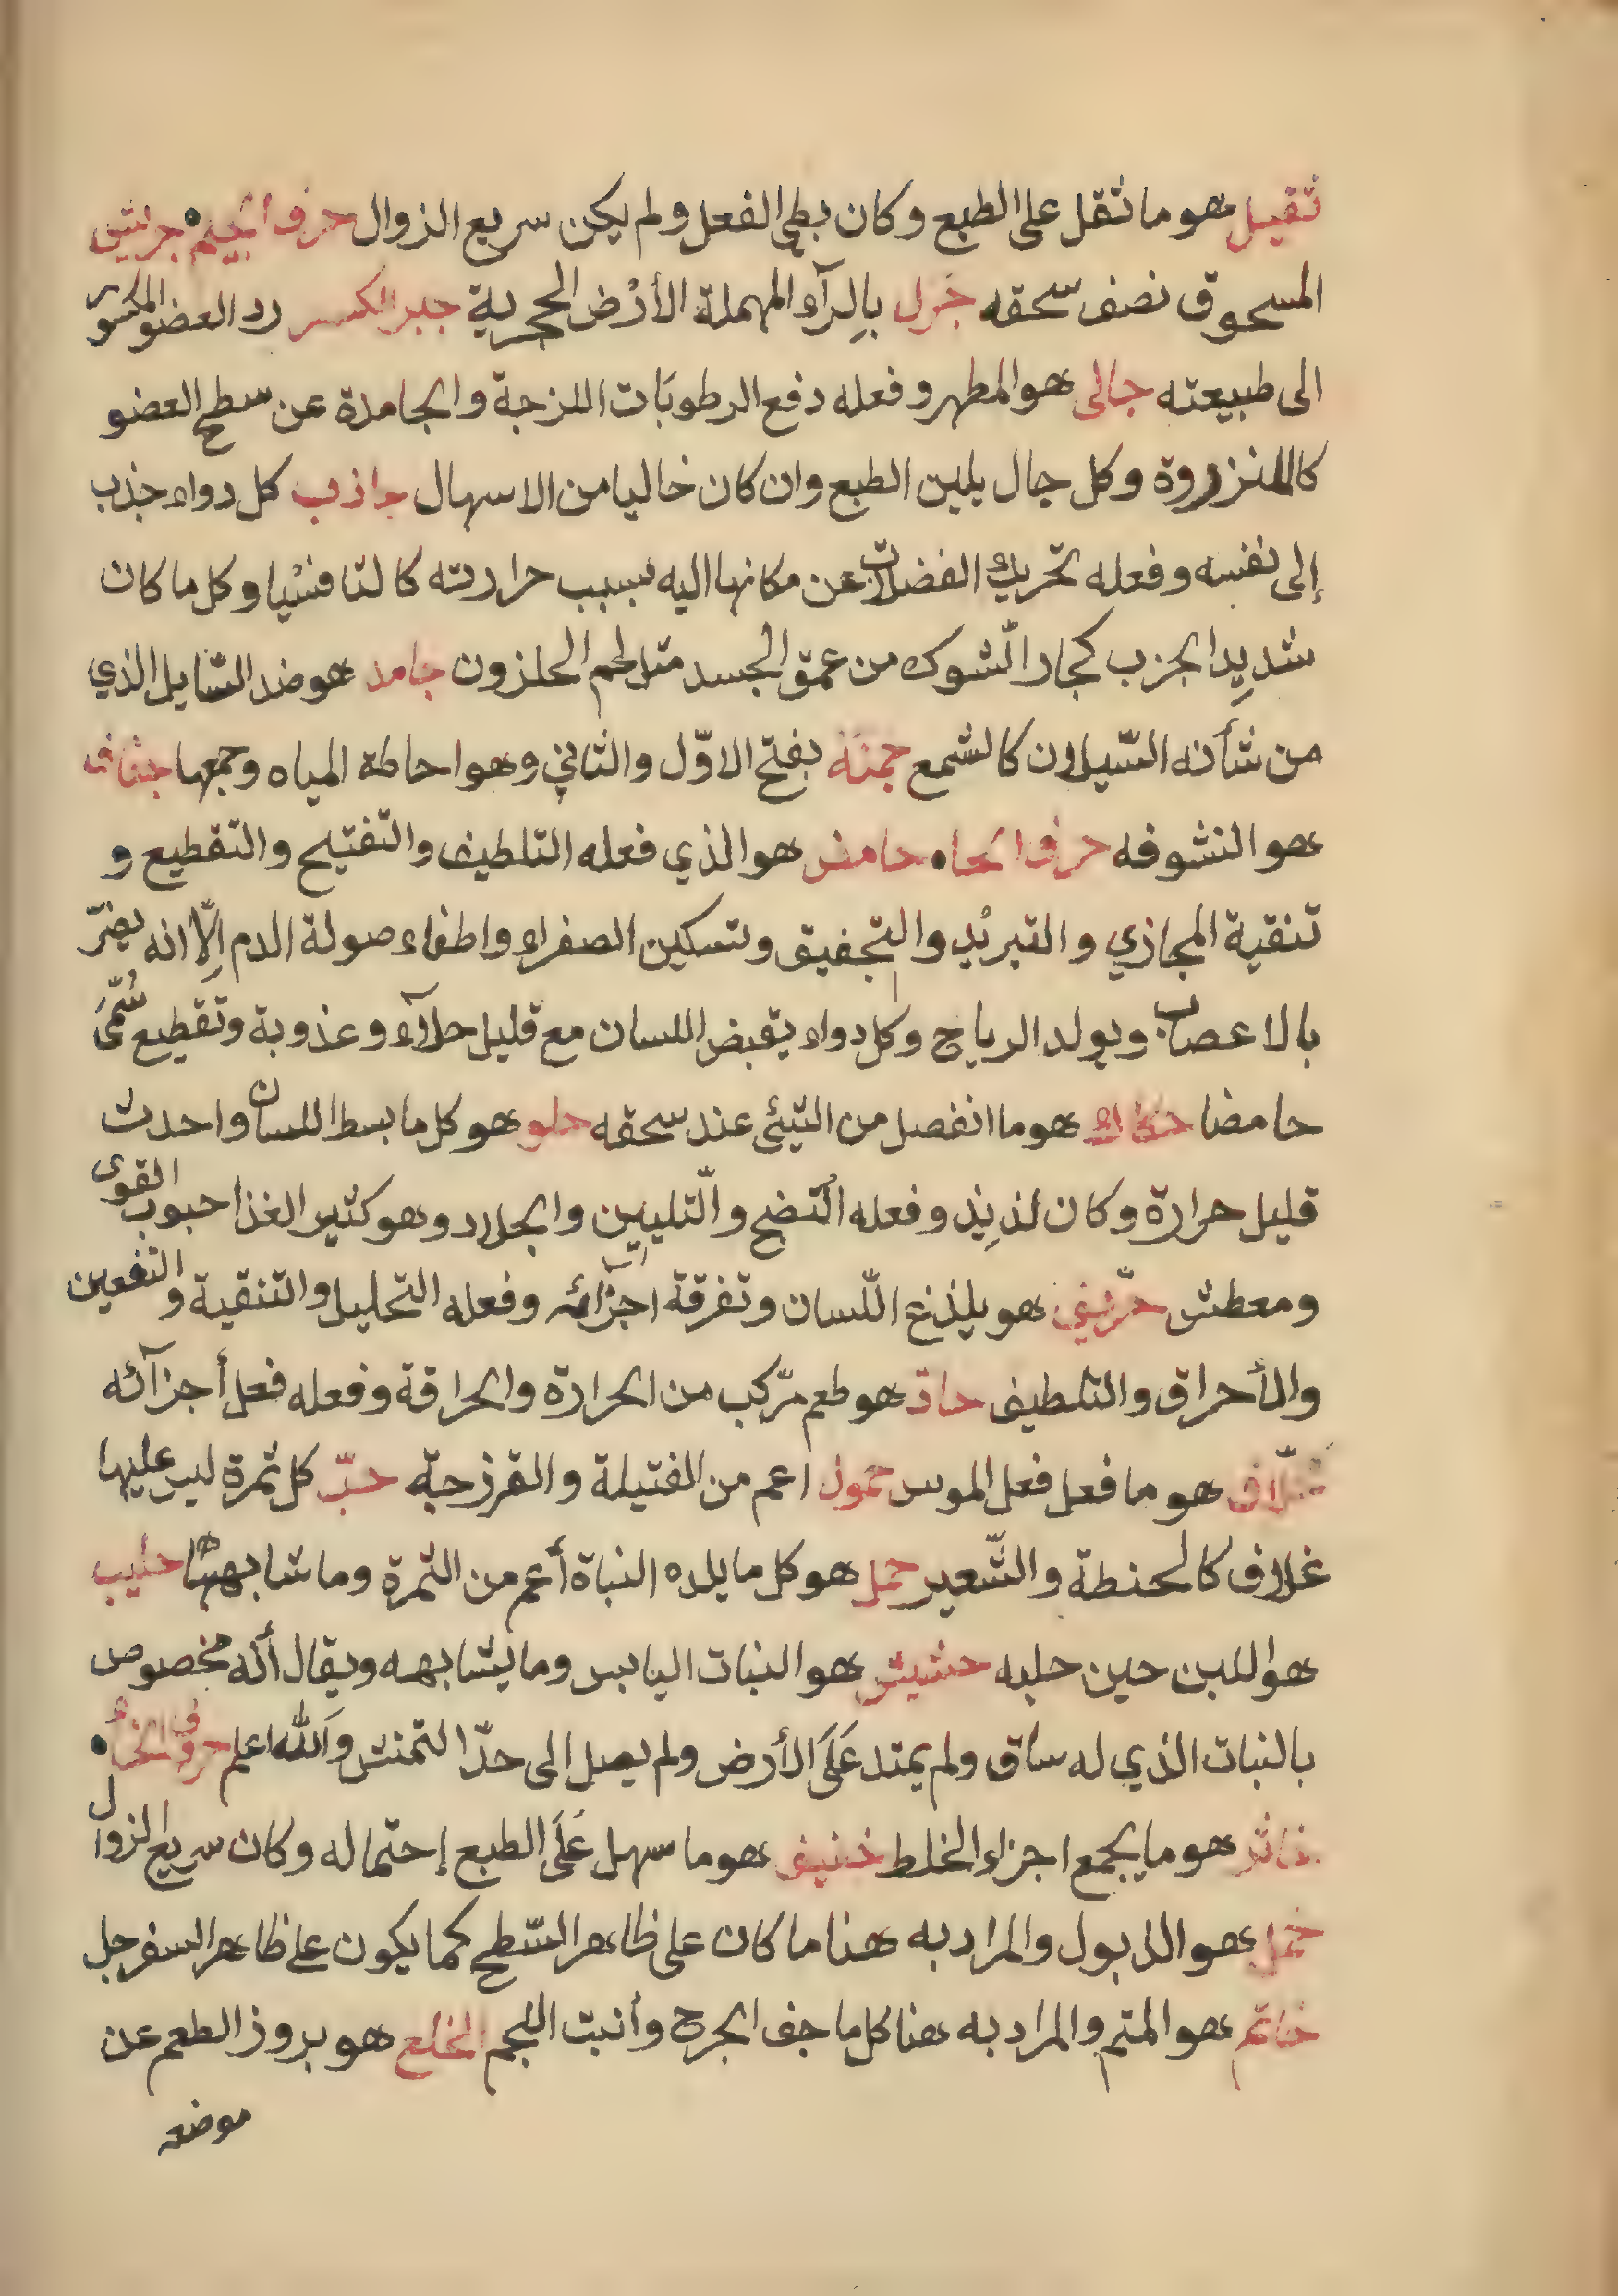 ثقيل هو ما ثقل على الطبع وكان بطئ الفعل ولم يكن سريع الزوال حرف الجيم جريش
المسحوق نصف سحقه جرل بالرآء المهملة الأرض الحجرية جبر الكسر رد العضو المكسور
الى طبيعته جالى هو المطهر وفعله دفع الرطوبات اللزجة والجامدة عن سطح العضو
كالانزروة وكل جال يلين الطبع وان كان خاليا من الاسهال جاذب كل دواء جذب
إلى نفسه وفعله تحريك الفضلات عن مكانها اليه بسبب حرارته كالثافسيا وكل ما كان
شديد الجزب كجار الشوك من عمق الجسد مثل لحم الحلزون جامد هو ضد السّايل الذي
من شأنه السّيلان كالشمع جمنة بفتح الاوّل والثاني وهو احاطة المياه وجمعها
هو النشوفه حرف الحاء حامض هو الذي فعله التلطيف والتفتيح والتقطيع و
تنقية المجازي والتبريد والتجفيق وتسكين الصفراء واطفاء صولة الدم الّا انه يضرّ
بالاعصاب ويولد الرياح وكل دواء يقبض اللسان مع قليل حلآوء وعذوبة وتقطيع سُمّىَ
حامضا حكاك هو ما انفصل من الشئ عند سحقه حلو هو كل ما بسط اللسان واحدث
قليل حرارة وكان لذيذ وفعله النّضج والتّليين والجلاد وهو كثير الغذا حبوب القوى
ومعطش حرّيف هو يلذع اللّسان وتفرقة اجزآئه وفعله التحليل والتنقية والتفعين
والأحراق والتلطيف حادّ هو طعم مرّكب من الحرارة والحراقة وفعله فعل أجزآئه
حلّاق هو ما فعل فعل الموس حمول اعم من الفتيلة والفرزجة حبّ كل ثمرة ليس عليها
غلاف كالحنطة والشّعير حمل هو كل ما يلده النباة أعم من الثمرة وما شابهها حليب
هو اللبن حين حلبه حشيش هو النبات اليابس وما يشابهه ويقال أنّه مخصوص
بالنبات الذي له ساق ولم يمتد عَلَى الأرض ولم يصل الى حدّ التمنش والله اعلم حرف الخاء
خاثر هو ما يجمع اجزاء الخلط خفيف هو ما سهل عَلَى الطبع إحتماله وكان سريع الزوال
خمل هو الذبول والمراد به هنا ما كان على ظاهر السّطح كما يكون على ظاهر السفرجل
خاتم هو المتم والمراد به هنا كل ما جفف الجرح وأنبت اللحم الخلع هو بروز الطعم عن
موضعه